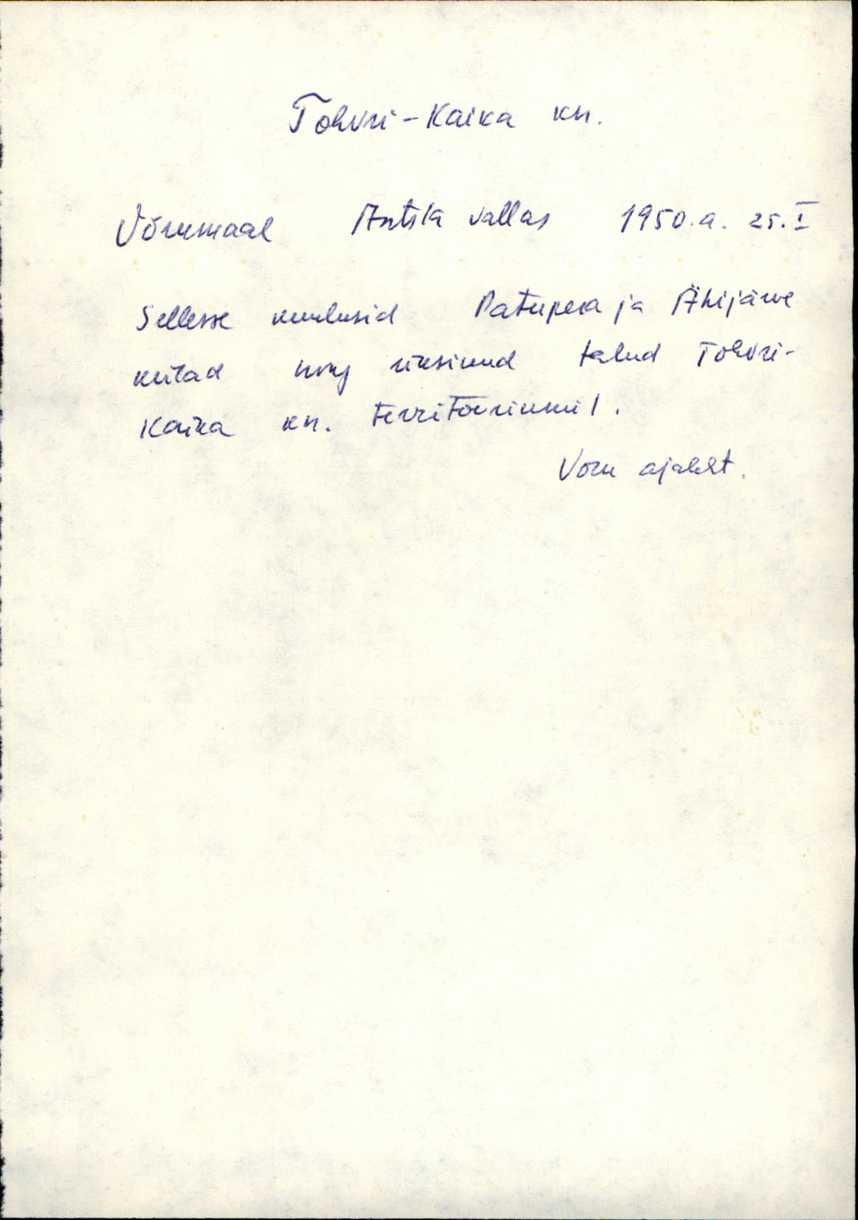 Tohvri-Kaika kn.
Võrumaal Antsla vallas 1950.a. 25.I
Sellesse kuulusid Patupera ja Ähijärve
külad ning üksikud talud Tohvri-
Kaika kn. territooriumil.
Võru ajaleht.